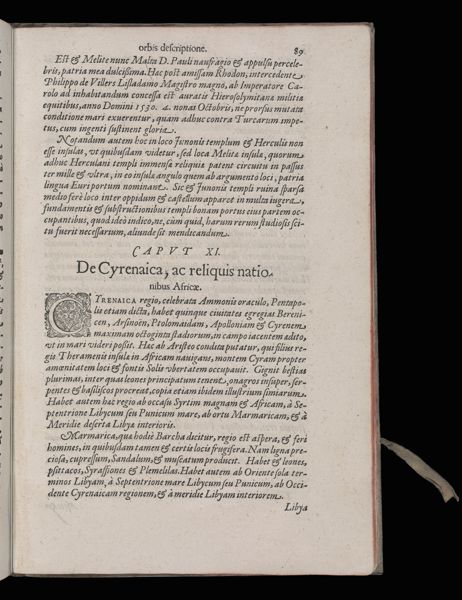 orbis descriptione. 89
Est & Melite nunc Malta D. Pauli naufragio & appulsu percele-
bris, patria mea dulcissima. Hac post amissam Rhodon, intercedente
Philippo de Villers Lisladamo Magistro magno, ab Imperatore Ca-
rolo ad inhabitandum concessa est auratis Hierosolymitana militia
equitibus, anno Domini 1530. 4. nonas Octobris, ne prorsus mutata
conditione mari exuerentur, quam adhuc contra Turcarum impe-
tus, cum ingenti sustinent gloria.
Notandum autem hoc in loco Junonis templum & Herculis non
esse insulas, vt quibusdam videtur, sed loca Melitæ insulæ, quorum
adhuc Herculani templi immensæ reliquiæ patent circuitu in passus
ter mille & vltra, in eo insulæ angulo quem ab argumento loci, patria
lingua Euri portum nominant. Sic & Junonis templi ruina sparsa
medio ferè loco inter oppidum & castellum apparet in multa iugera,
fundamentis & substructionibus templi bonam portus eius partem oc-
cupantibus, quod ideò indico, ne, cùm quid, harum rerum studiosis sci-
tu fuerit necessarium, aliunde sit mendicandum.
CAPVT XI.
De Cyrenaica, ac reliquis natio-
nibus Africæ.
CYRENAICA regio, celebrata Ammonis oraculo, Pentapo-
lis etiam dicta, habet quinque ciuitates egregias Bereni-
cen, Arsinoën, Ptolomaidam, Apolloniam & Cyrenem
maximam octoginta stadiorum, in campo iacentem adito,
vt in mari videri possit. Hæc ab Aristeo condita putatur, qui filius re-
gis Theramenis insulæ in Africam nauigans, montem Cyram propter
amœnitatem loci & fontis Solis vbertatem occupauit. Gignit bestias
plurimas, inter quas leones principatum tenent, onagros insuper, ser-
pentes & basiliscos procreat, copia etiam ibidem illustrium simiarum.
Habet autem hæc regio ab occasu Syrtim magnam & Africam, à Se-
ptentrione Libycum seu Punicum mare, ab ortu Marmaricam, & à
Meridie deserta Libyæ interioris.
Marmarica, quæ hodie Barcha dicitur, regio est aspera, & feri
homines, in quibusdam tamen & certis locis frugifera. Nam ligna pre-
ciosa, cupressum, Sandalum, & muscatum producit. Habet & leones,
psittacos, Syrassiones & Plemelilas. Habet autem ab Oriente sola ter-
minos Libyam, à Septentrione mare Libycum seu Punicum, ab Occi-
dente Cyrenaicam regionem, & à meridie Libyam interiorem.
Libya